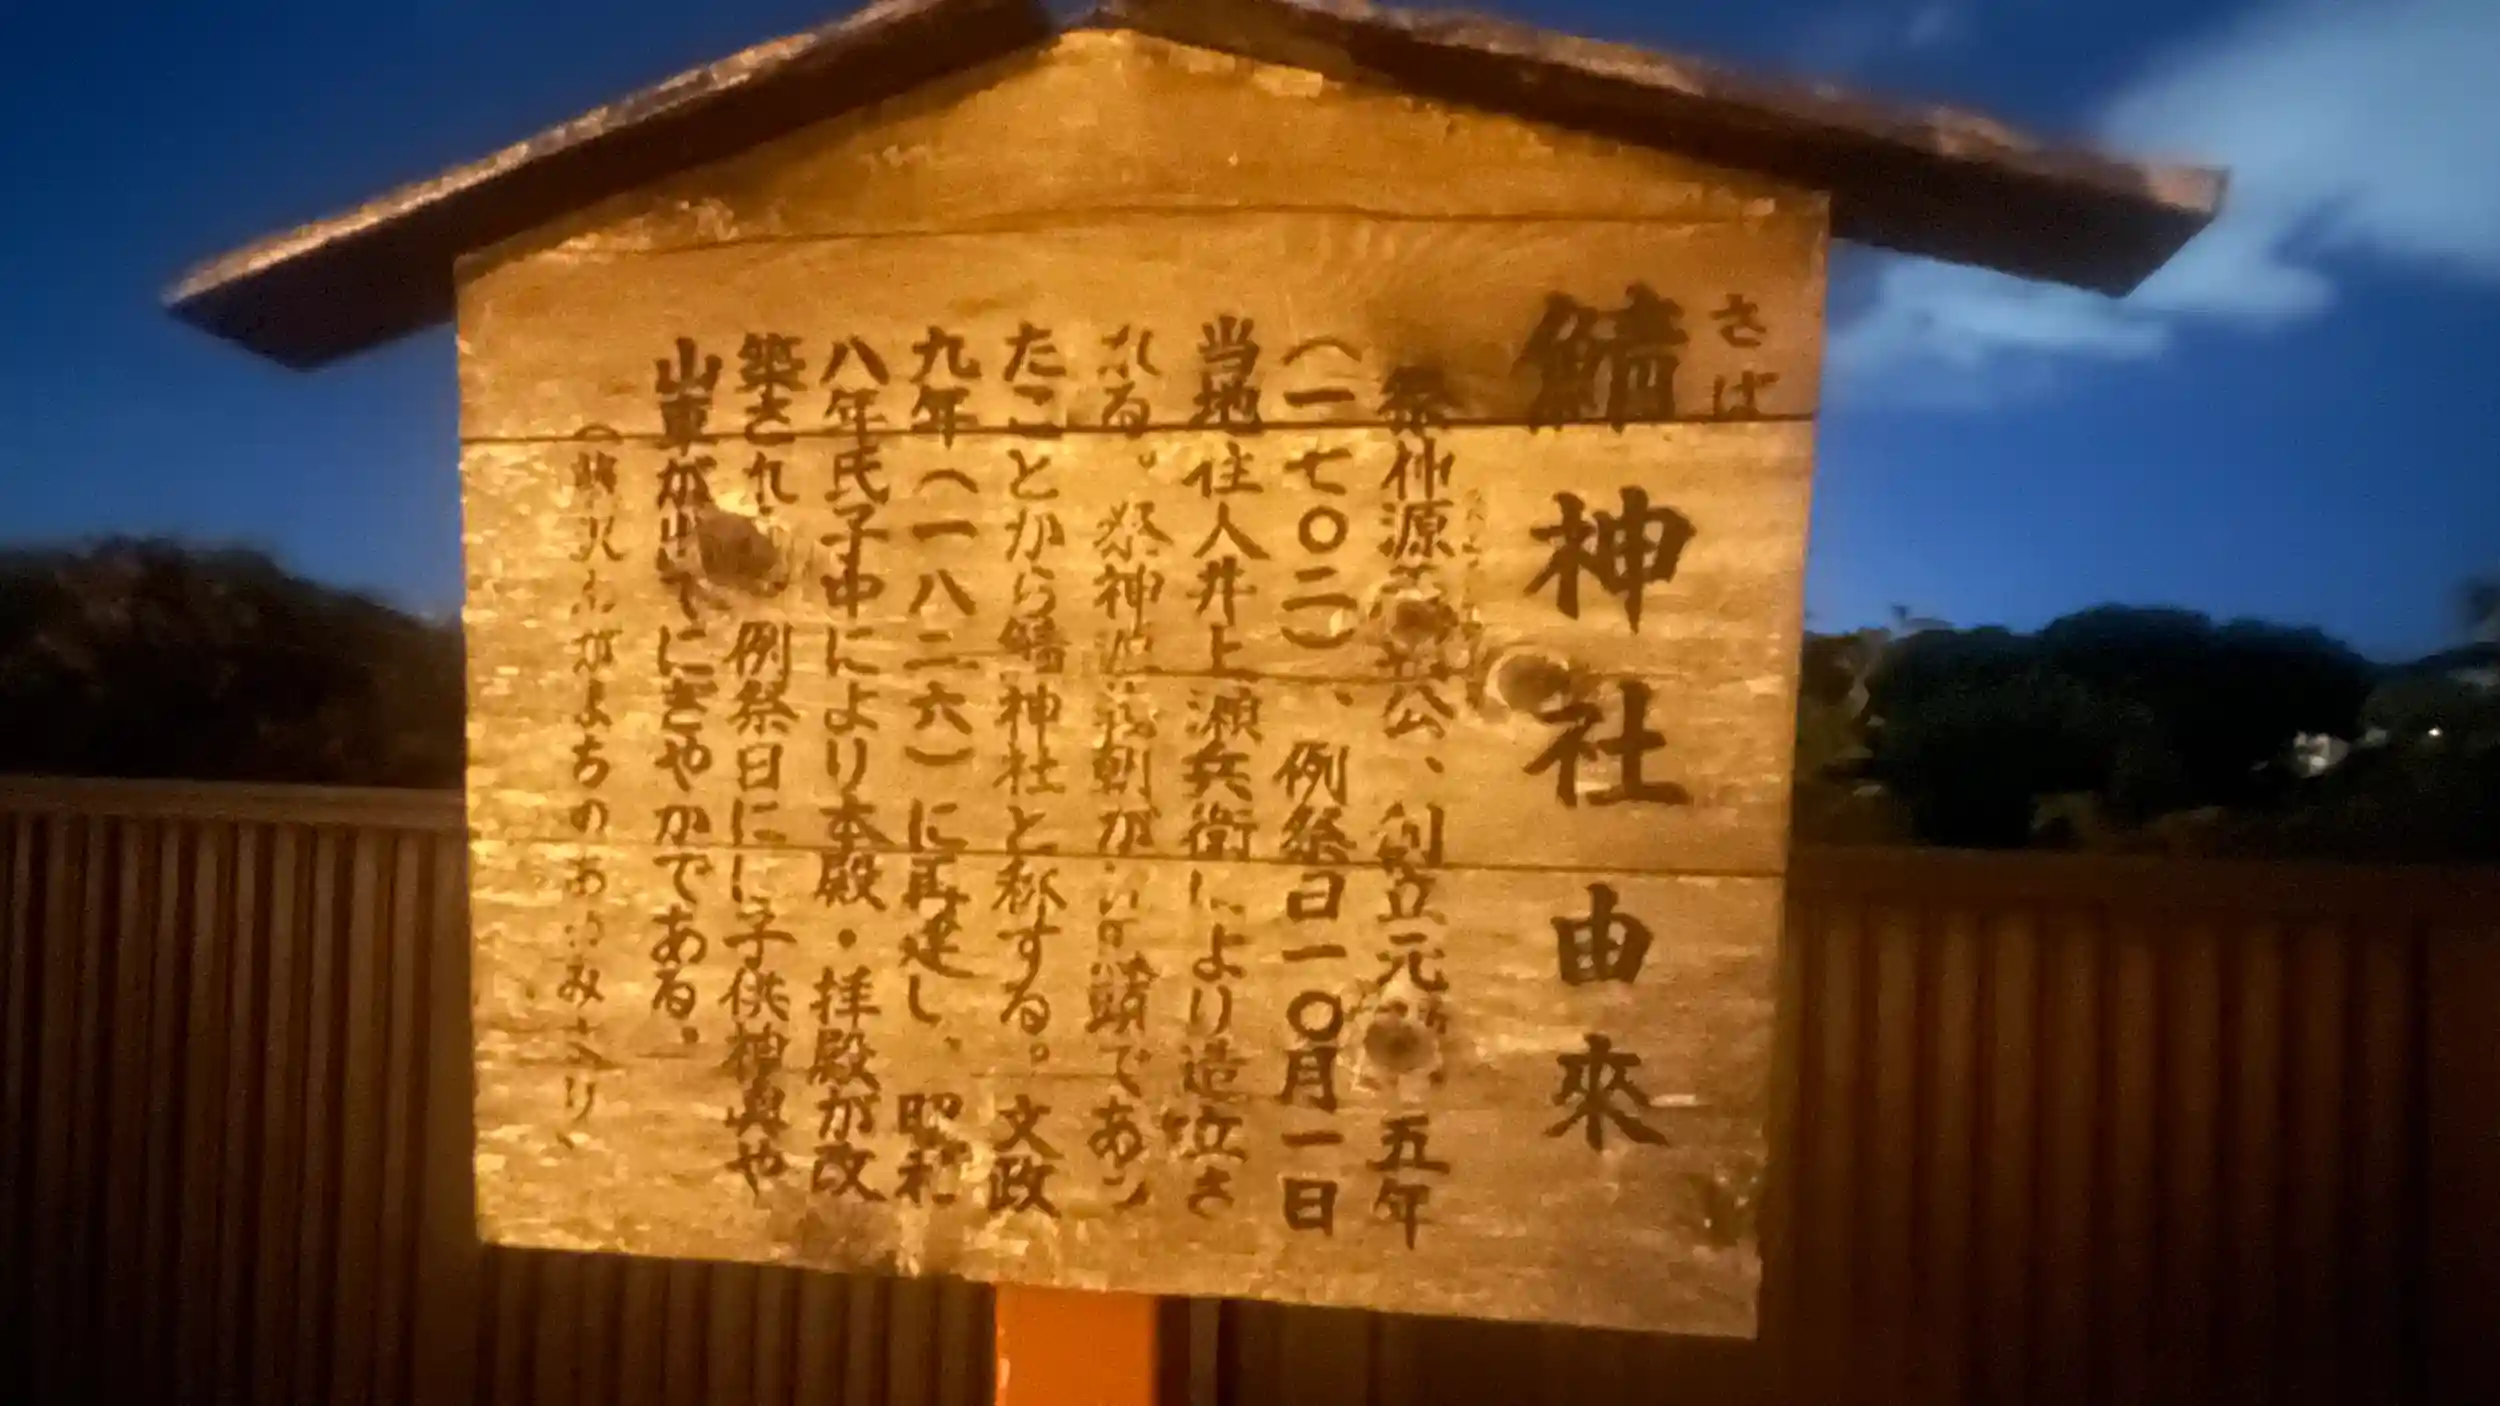 さば
鯖神社由來
祭神源義朝公、創立元禄 五年
(一七〇二)、例祭日一〇月一日
当地住人井上瀬兵衛により造立さ
れる。祭神源義朝が 鯖であっ
たことから鯖神社と称する。文政
九年(一八二六)に再建し、昭和
八年氏子中により本殿・拝殿が改
築され、例祭日には子供神輿や
山車が出てにぎやかである。